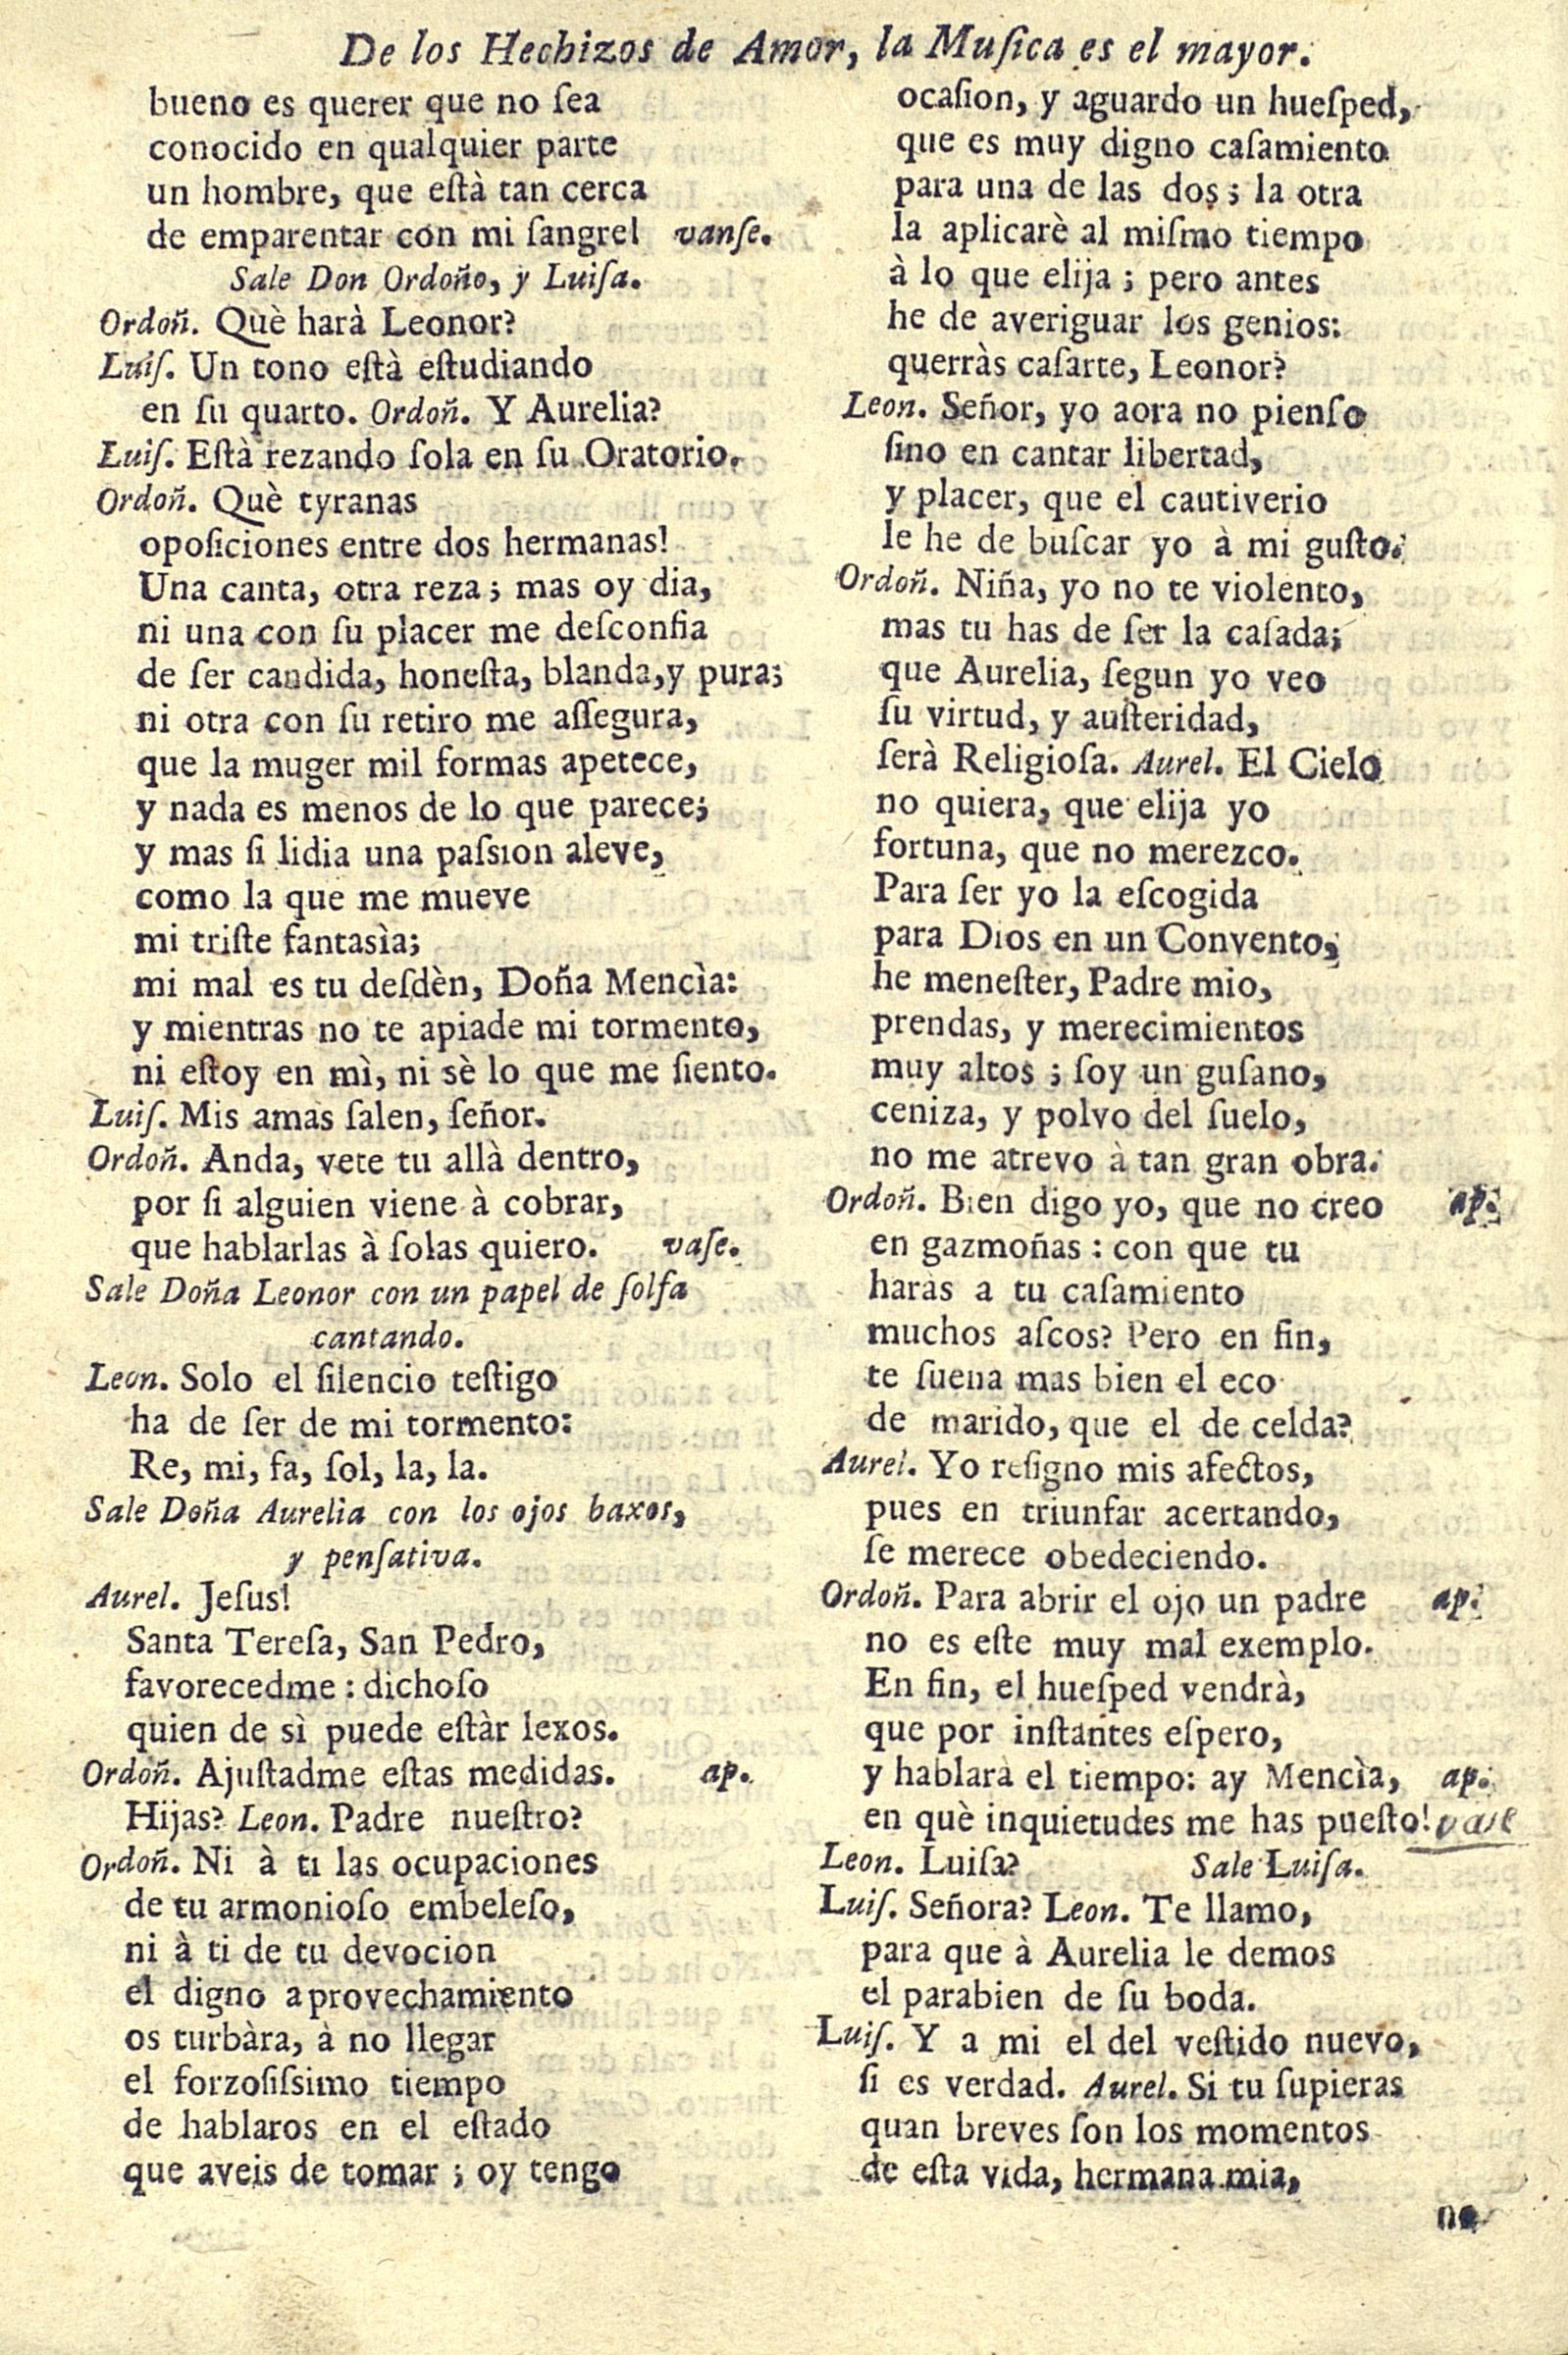 De los Hechizos de Amor, la Muſica es el mayor.
bueno es querer que no ſea
conocido en qualquier parte
un hombre, que eſtà tan cerca
de emparentar con mi ſangre! vanſe.
Sale Don Ordoño, y Luiſa.
Ordoñ. Què harà Leonor?
Luiſ. Un tono eſtà eſtudiando
en ſu quarto. Ordoñ. Y Aurelia?
Luiſ. Eſtà rezando ſola en ſu Oratorio.
Ordoñ. Què tyranas
opoſiciones entre dos hermanas!
Una canta, otra reza; mas oy dia,
ni una con ſu placer me deſconfia
de ſer candida, honeſta, blanda, y pura;
ni otra con ſu retiro me aſſegura,
que la muger mil formas apetece,
y nada es menos de lo que parece;
y mas ſi lidia una paſsion aleve,
como la que me mueve
mi triſte fantasìa;
mi mal es tu deſdèn, Doña Mencìa:
y mientras no te apiade mi tormento,
ni eſtoy en mì, ni sè lo que me ſiento.
Luiſ. Mis amas ſalen, ſeñor.
Ordoñ. Anda, vete tu allà dentro,
por ſi alguien viene à cobrar,
que hablarlas à ſolas quiero. vaſe.
Sale Doña Leonor con un papel de ſolfa
cantando.
Leon. Solo el ſilencio teſtigo
ha de ſer de mi tormento:
Re, mi, fa, ſol, la, la.
Sale Doña Aurelia con los ojos baxos,
y penſativa.
Aurel. Jeſus!
Santa Tereſa, San Pedro,
favorecedme: dichoſo
quien de sì puede eſtàr lexos.
Ordoñ. Ajuſtadme eſtas medidas. ap.
Hijas? Leon. Padre nueſtro?
Ordoñ. Ni à ti las ocupaciones
de tu armonioſo embeleſo,
ni à ti de tu devocion
el digno aprovechamiento
os turbàra, à no llegar
el forzoſiſsimo tiempo
de hablaros en el eſtado
que aveis de tomar; oy tengo
ocaſion, y aguardo un hueſped,
que es muy digno caſamiento
para una de las dos; la otra
la aplicarè al miſmo tiempo
à lo que elija; pero antes
he de averiguar los genios:
querràs caſarte, Leonor?
Leon. Señor, yo aora no pienſo
ſino en cantar libertad,
y placer, que el cautiverio
le he de buſcar yo à mi guſto.
Ordoñ. Niña, yo no te violento,
mas tu has de ſer la caſada;
que Aurelia, ſegun yo veo
ſu virtud, y auſteridad,
ſerà Religioſa. Aurel. El Cielo
no quiera, que elija yo
fortuna, que no merezco.
Para ſer yo la eſcogida
para Dios en un Convento,
he meneſter, Padre mio,
prendas, y merecimientos
muy altos; ſoy un guſano,
ceniza, y polvo del ſuelo,
no me atrevo à tan gran obra.
Ordoñ. Bien digo yo, que no creo ap.
en gazmoñas: con que tu
haràs a tu caſamiento
muchos aſcos? Pero en fin,
te ſuena mas bien el eco
de marido, que el de celda?
Aurel. Yo reſigno mis afectos,
pues en triunfar acertando,
ſe merece obedeciendo.
Ordoñ. Para abrir el ojo un padre ap.
no es eſte muy mal exemplo.
En fin, el hueſped vendrà,
que por inſtantes eſpero,
y hablarà el tiempo: ay Mencìa, ap.
en què inquietudes me has pueſto! vase
Leon. Luiſa? Sale Luiſa.
Luiſ. Señora? Leon. Te llamo,
para que à Aurelia le demos
el parabien de ſu boda.
Luiſ. Y a mi el del veſtido nuevo,
ſi es verdad. Aurel. Si tu ſupieras
quan breves ſon los momentos
de eſta vida, hermana mia,
no